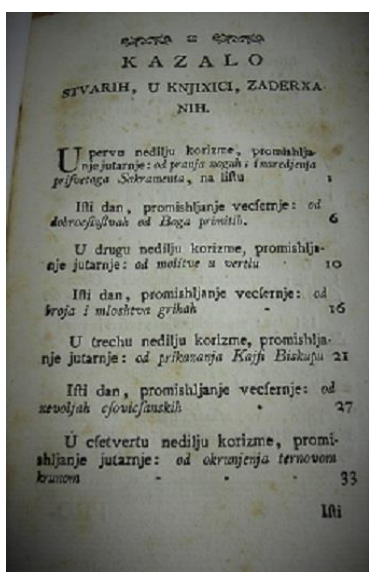 KAZALO
STVARIH, U KNJIXICI, ZADERXA-
NIH.
U pervu nedilju korizme, promishlja-
nje jutarnje: od pranja nogah i naredjenja
prisvetoga Sakramenta, na listu 1
Isti dan, promishljanje vecsernje: od
dobrocsinstvah od Boga primitih. 6
U drugu nedilju korizme, promishlja-
nje jutarnje: od molitve u vertlu 10
Isti dan, promishljanje vecsernje: od
broja i mloshtva grihah - 16
U trechu nedilju korizme, promishlja-
nje jutarnje: od prikazanja Kajfi Biskupu 21
Isti dan, promishljanje vecsernje: od
nevoljah csovicsanskih 27
U csetvertu nedilju korizme, promi-
shljanje jutarnje: od okrunjenja ternovom
krunom - - - 33
Isti